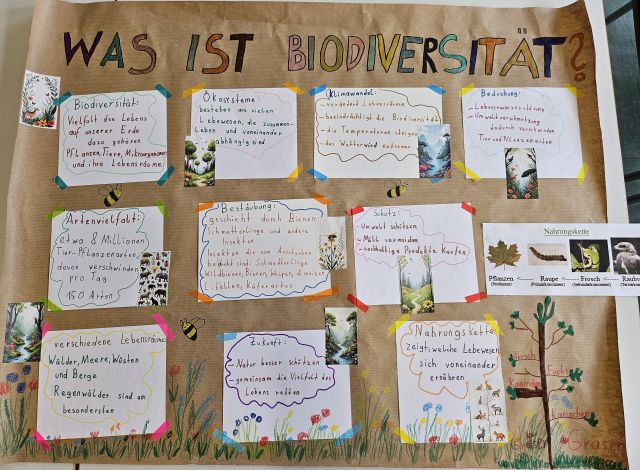 WAS IST BIODIVERSITÄT?
Biodiversität:
Vielfalt des Lebens
auf unserer Erde
dazu gehören
Pflanzen, Tiere, Mikroorganismen
und ihre Lebensräume
Ökosysteme:
bestehen aus vielen
Lebewesen, die zusammen-
leben und voneinander
abhängig sind
Klimawandel:
- verändert Lebensräume
- beeinträchtigt die Biodiversität
- die Temperaturen steigen
- das Wetter wird extremer
Bedrohung:
- Lebensraumzerstörung
- Umweltverschmutzung
dadurch verschwinden
Tier und Pflanzenarten
Artenvielfalt:
etwa 8 Millionen
Tier-Pflanzenarten
davon verschwinden
pro Tag
150 Arten
Bestäubung:
geschieht durch Bienen
Schmetterlinge und andere
Insekten
Insekten die vom Aussterben
bedroht sind: Schmetterlinge
Wildbienen, Bienen, Wespen, Ameisen
Libellen, Käferarten
Schutz:
- Umwelt schützen
- Müll vermeiden
- nachhaltige Produkte kaufen
Nahrungskette
Pflanzen <------ Raupe <------ Frosch <------ Raubv
(Produzent)
verschiedene Lebensräume:
Wälder, Meere, Wüsten
und Berge
Regenwälder sind am
besondersten
Zukunft:
- Natur besser schützen
- gemeinsam die Vielfalt des
Lebens retten
Nahrungskette
zeigt, welche Lebewesen
sich voneinander
ernähren
Hirsch
Fuchs
Kaninchen
Gräser